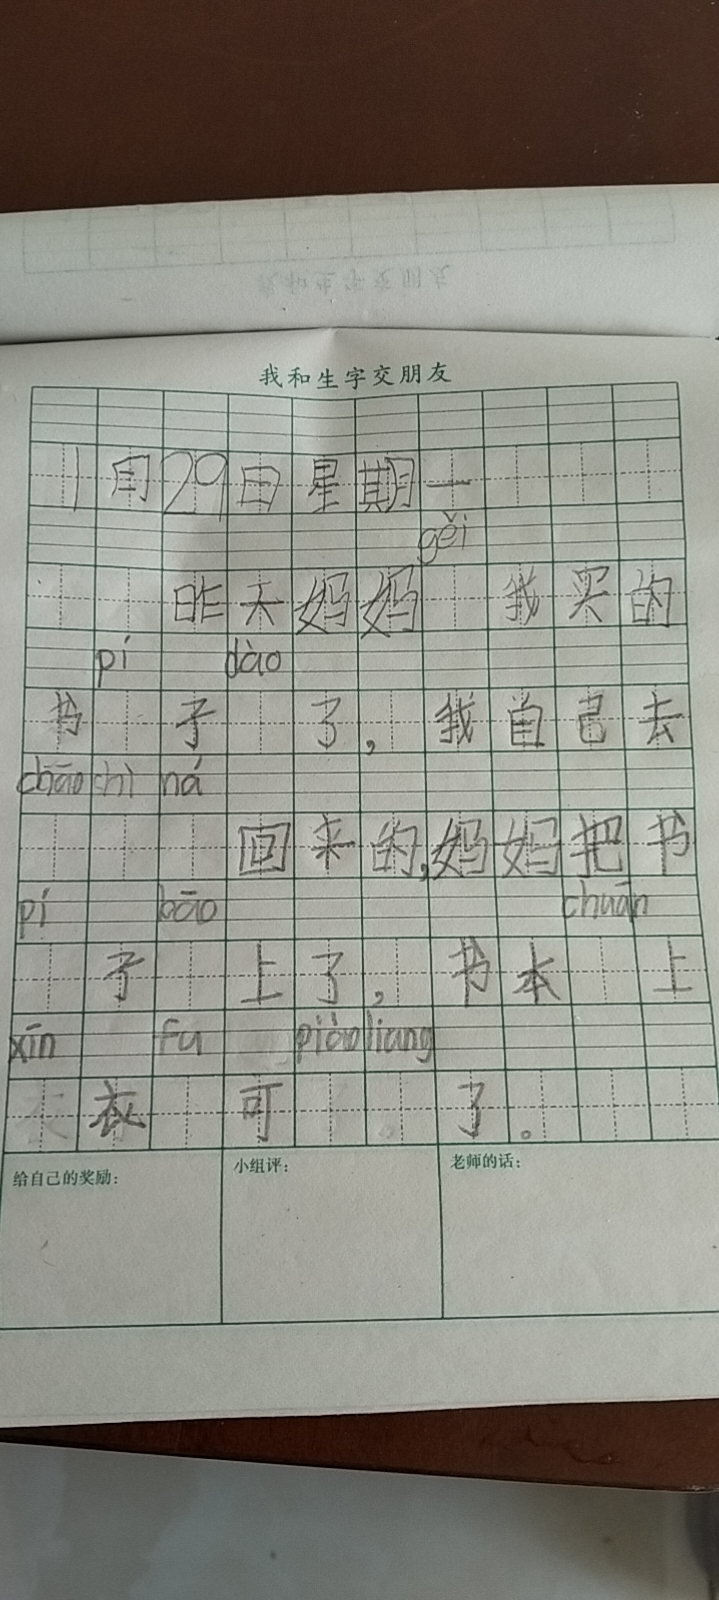 我和生字交朋友
11月29日星期一
gěi
昨天妈妈 我买的
pí dào
书 子 了，我自己去
chāo chì ná
回来的，妈妈把书
pí bāo chuān
子 上了，书本 上
xīn fu piào liang
衣 可 了。
给自己的奖励： 小组评： 老师的话：